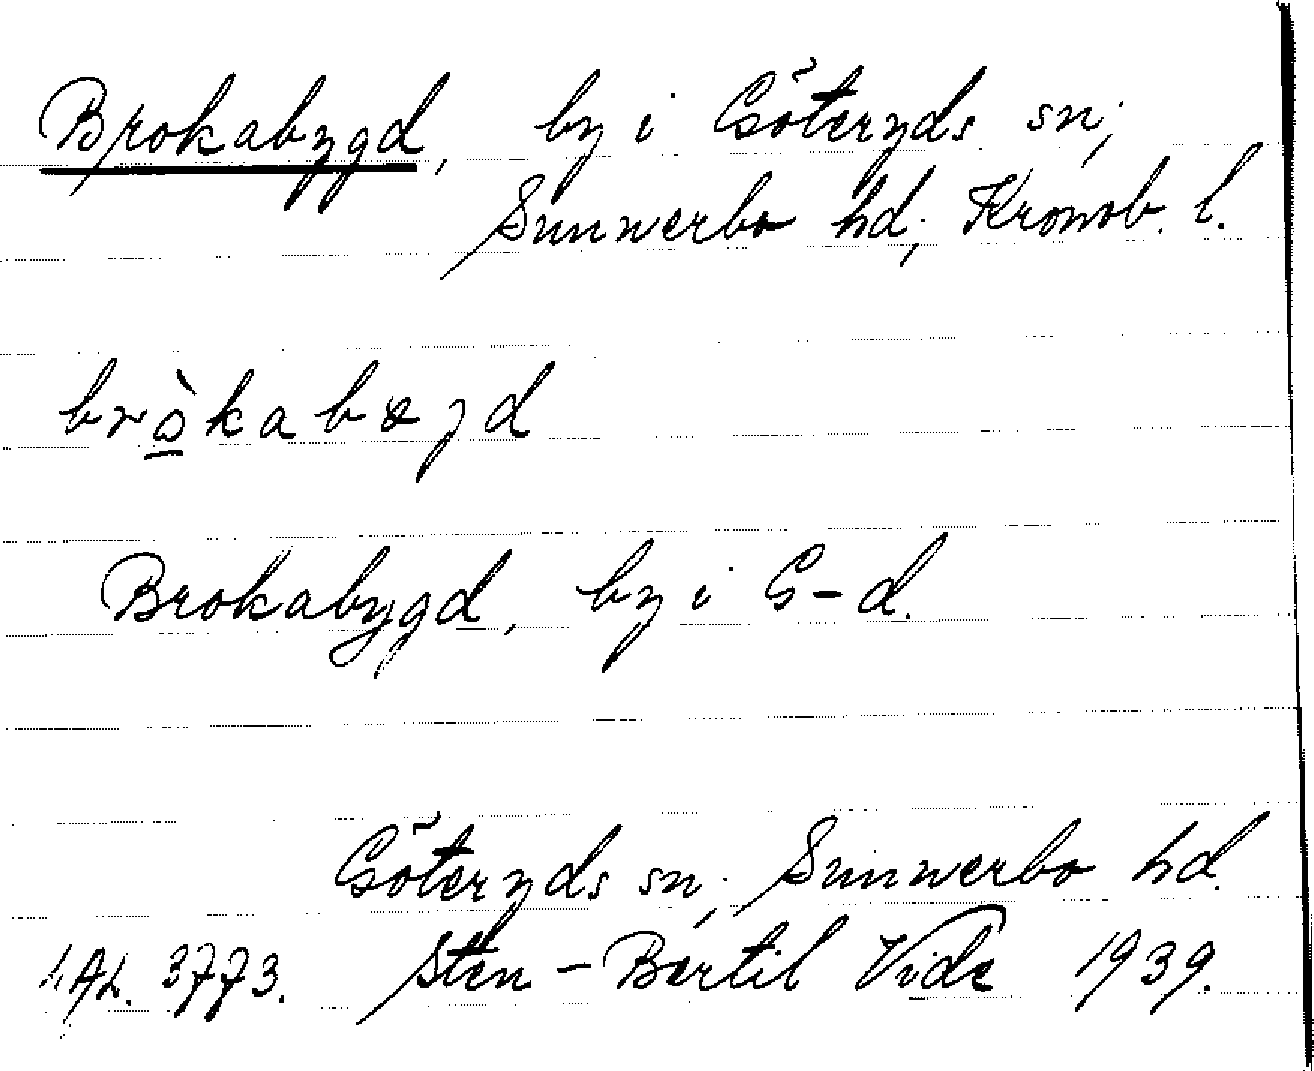 Brokabygd, by i Göteryds sn,
Sunnerbo hd, Kronob. l.
bròkabøjd
Brokabygd, by i G-d.
Göteryds sn, Sunnerbo hd.
LAL. 3773. Sten-Bertil Vide 1939.